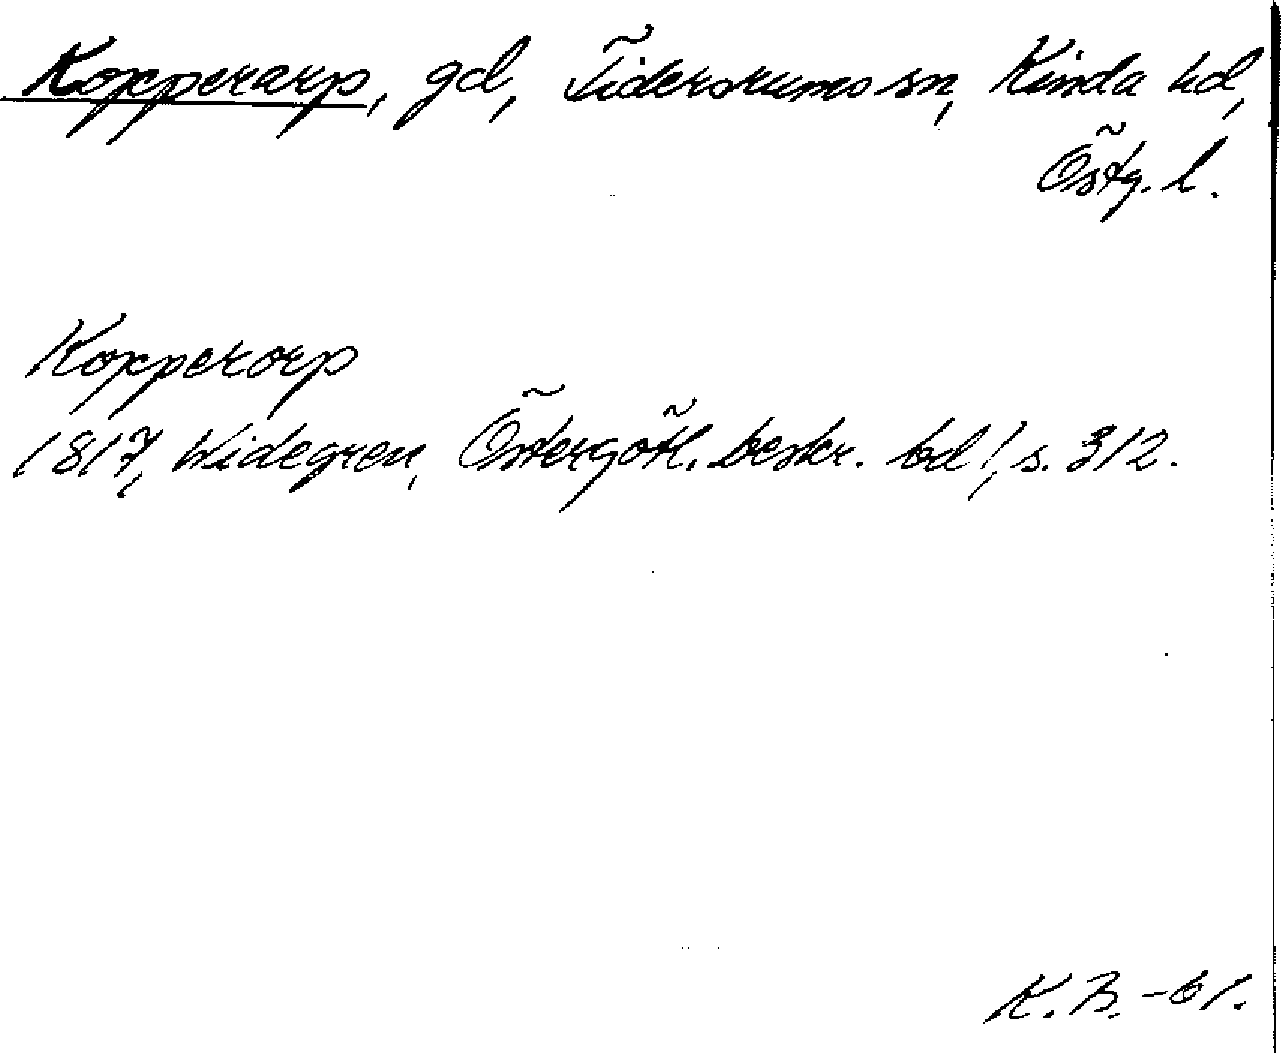 Kopperarp, gd, Tidersrums sn, Kinda hd,
Östg. l.
Kopperorp
1817, Widegren, Östergötl. beskr. bd 1, s. 312.
K. B. -61.